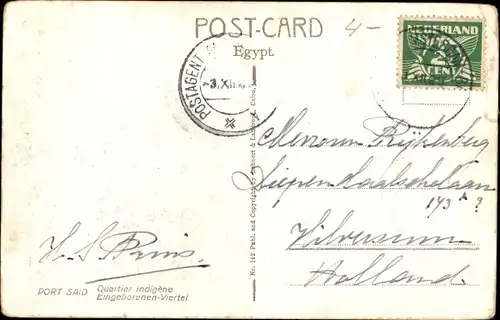 POST-CARD
Egypt.
4-
NEDERLAND
CENT
POSTAGENT
3.XII
Mevrouw Rijkenberg
143 A ?
Hilversum
Holland.
H. S. Prins
PORT SAID Quartier indigène
Eingeborenen-Viertel
Nr. 142 Publ. and Copyright by Lehnert & Landrock, Cairo.